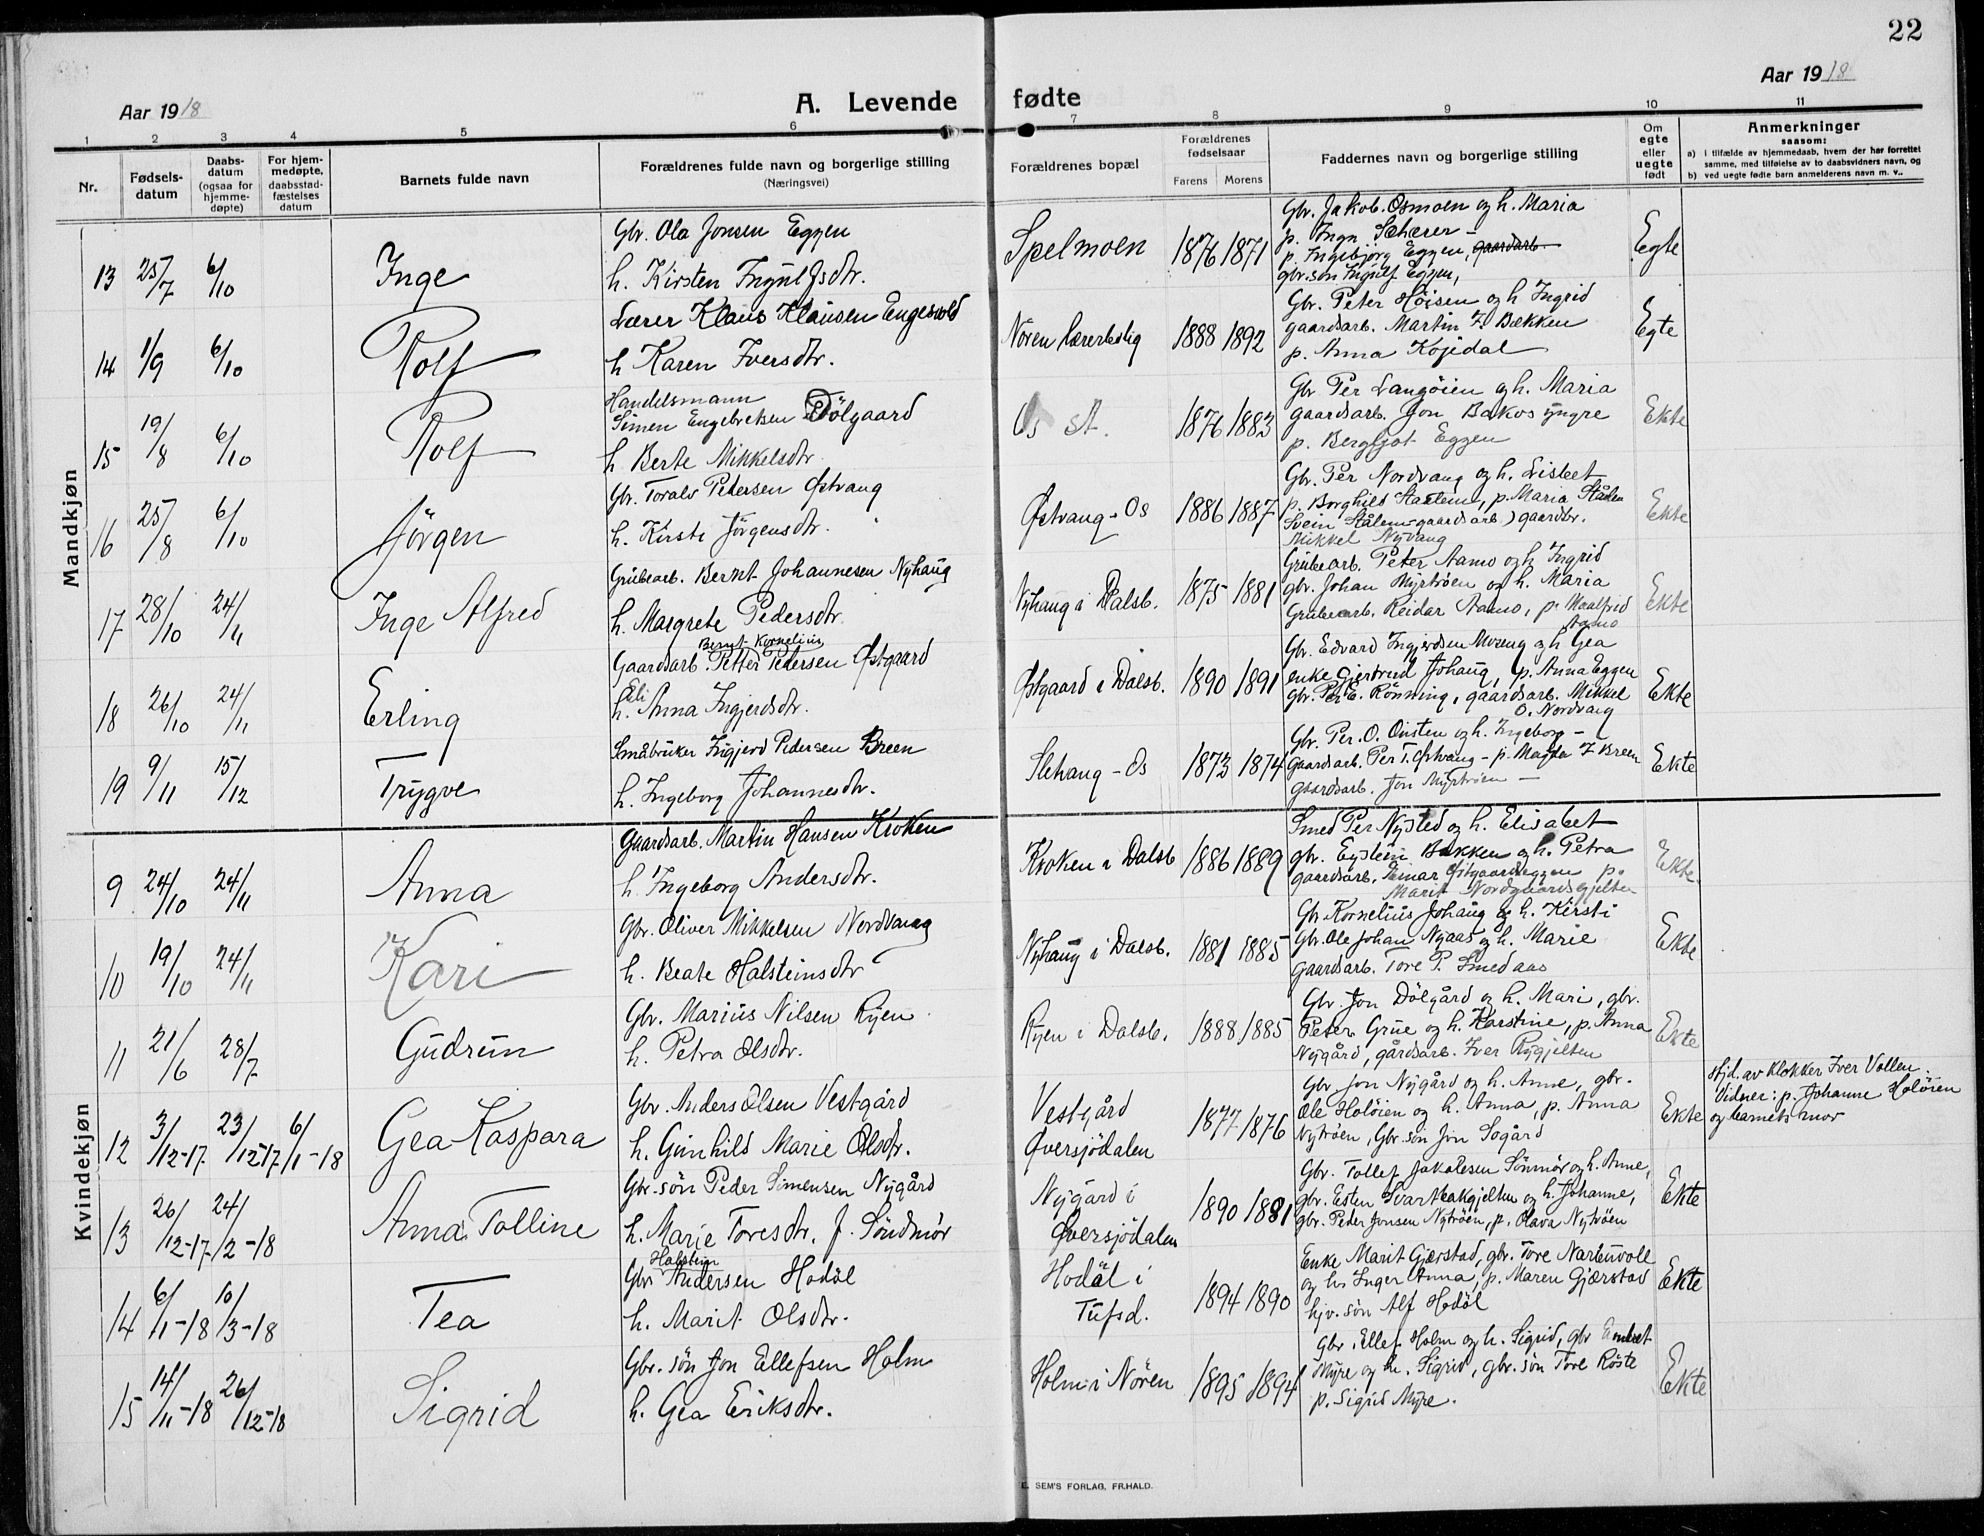 22
Aar 1918
A. Levende fødte
Aar 1918
1 2 3 4 5 6 7 8 9 10 11
Nr.
Fødsels-
datum
Daabs-
datum
(ogsaa for
hjemme-
døpte)
For hjem-
medøpte,
daabsstad-
fæstelses
datum
Barnets fulde navn
Forældrenes fulde navn og borgerlige stilling
(Næringsvei)
Forældrenes bopæl
Forældrenes
fødselsaar
Farens Morens
Faddernes navn og borgerlige stilling
Om
egte
eller
uegte
født
Anmerkninger
saasom:
a) i tilfælde av hjemmedaab, hvem der har forrettet
samme, med tilføielse av to daabsvidners navn, og
b) ved uegte fødte barn anmelderens navn m. v..
Mandkjøn
13 25/7 6/10 Inge
Gbr. Ola Jonsen Eggen
h. Kirsten Ingulfsdtr.
Spelmoen 1876 1871
Gbr. Jakob Osmoen og h. Maria
p. Inga Schærer -
p. Ingebjørg Eggen, gaardarb.
gbr.søn Ingulf Eggen,
Egte
14 1/9 6/10 Rolf
Lærer Klaus Klausen Engesvold
h Karen Iversdtr.
Nören lærerbolig 1888 1892
Gbr. Peter Höisen og h Ingrid
gaardsarb. Martin J. Bækken
p. Anna Kojedal
Egte
15 19/8 6/10 Rolf
Handelsmann
Simen Engebretsen Dölgaard
h. Berte Mikkelsdtr.
Os st. 1876 1883
Gbr Per Langöien og h. Maria
gaardsarb. Jon Bakos yngre
p. Bergljot Eggen
Ekte
16 25/8 6/10 Jörgen
Gbr. Toralv Pedersen Østvang
h. Kirsti Jörgensdtr.
Østvang - Os 1886 1887
Gbr. Per Nordvang og h. Lisbet
p. Borghild Staalem, p. Maria Stålen
Svein Stålem - gaardsarb) gaardbr.
Mikkel Nyvang
Ekte
17 28/10 24/11 Inge Alfred
Grubearb. Bernt Johannesen Nyhaug
h. Margrete Pedersdtr.
Nyhaug i Dalsb. 1875 1881
Grubearb. Peter Aamo og h Ingrid
gbr. Johan Myrtröen og h. Maria
Grubearb. Reidar Aamo, p. Maalfrid
Aamo
Ekte
18 26/10 24/11 Erling
Bernt Kornelius
Gaardsarb. Petter Pedersen Østgaard
Eli
h. Anna Ingjerdsdtr.
Østgaard i Dalsb. 1890 1891
Gbr. Edvard Ingjerdsen Moseng og h Gea
enke Gjertrud Johaug, p. Anna Eggen
gbr. Per E. Rönning, gaardsarb. Mikkel
O. Nordvang
Ekte
19 9/11 15/12 Trygve
Småbruker Ingjerd Pedersen Breen
h. Ingeborg Johannesdtr.
Slehaug - Os 1873 1874
Gbr. Per. O. Ousten og h. Ingeborg -
Gaardsarb. Per T. Østvang - p. Magda J Breen
Gaardsarb. Jon Myrtröen -
Ekte
Kvindekjøn
9 24/10 24/11 Anna
Gaardsarb. Martin Hansen Kroken
h. Ingeborg Andersdtr.
Kroken i Dalsb 1886 1889
Smed Per Nysted og h. Elisabet
gbr. Eystein Bakken og h. Petra
gaardsarb. Einar Østgaardseggen p.
Marit Nordgaardsgjelten
Ekte.
10 19/10 24/11 Kari
Gbr. Oliver Mikkelsen Nordvang
h. Beate Halsteinsdtr
Nyhaug i Dalsb. 1881 1885
Gbr. Kornelius Johaug og h. Kirsti
Gbr. Ole Johan Nyaas og h. Marie
gaardsarb. Tore P. Smedaas
Ekte
11 21/6 28/7 Gudrun
Gbr. Marius Nilsen Ryen
h. Petra Olsdtr.
Ryen i Dalsb. 1888 1885
Gbr. Jon Dölgård og h. Mari, gbr.
Peter Grue og h. Karstine, p. Anna
Nygård, gårdsarb. Iver Rygjelten
Ekte
12 3/12-17 23/12-17 6/1-18 Gea Kaspara
Gbr. Anders Olsen Vestgård
h. Gunhild Marie Olsdtr.
Vestgård
Øversjödalen 1877 1876
Gbr Jon Nygård og h. Anne, gbr.
Ole Holöien og h. Anna, p. Anna
Nytröen, Gbr. søn Jon Sogård
Ekte
Hjd. av klokker Iver Vollen.
Vidner: p. Johanne Holöien
og barnets mor
13 26/12-17 24/2-18 Anna Tolline
Gbr.-søn Peder Simensen Nygård
h. Marie Toresdtr. f. Söndmör
Nygård i
Øversjödalen 1890 1881
Gbr. Tollef Jakobsen Sönmör og h. Anne,
gbr. Esten Svartbakgjelten og h. Johanne,
gbr. Peder Jonsen Nytröen, p. Olava Nytröen
Ekte
14 6/1-18 10/3-18 Tea
Halstein
Gbr Andersen Hodöl
h. Marit Olsdtr.
Hodöl i
Tufsd. 1894 1890
Enke Marit Gjærstad, gbr. Tore Narbuvoll
og h. Inger Anna, p. Maren Gjærstad
hjv. søn Alf Hodöl
Ekte
15 14/11-18 26/12-18 Sigrid
Gbr. søn Jon Ellefsen Holm
h. Gea Eriksdtr.
Holm i Nören 1895 1894
Gbr. Ellef Holm og h. Sigrid, gbr Embret
Myre og h. Sigrid, gbr. søn Tore Röste
p. Sigrid Myre.
Ekte
E. SEM'S FORLAG, FR.HALD.